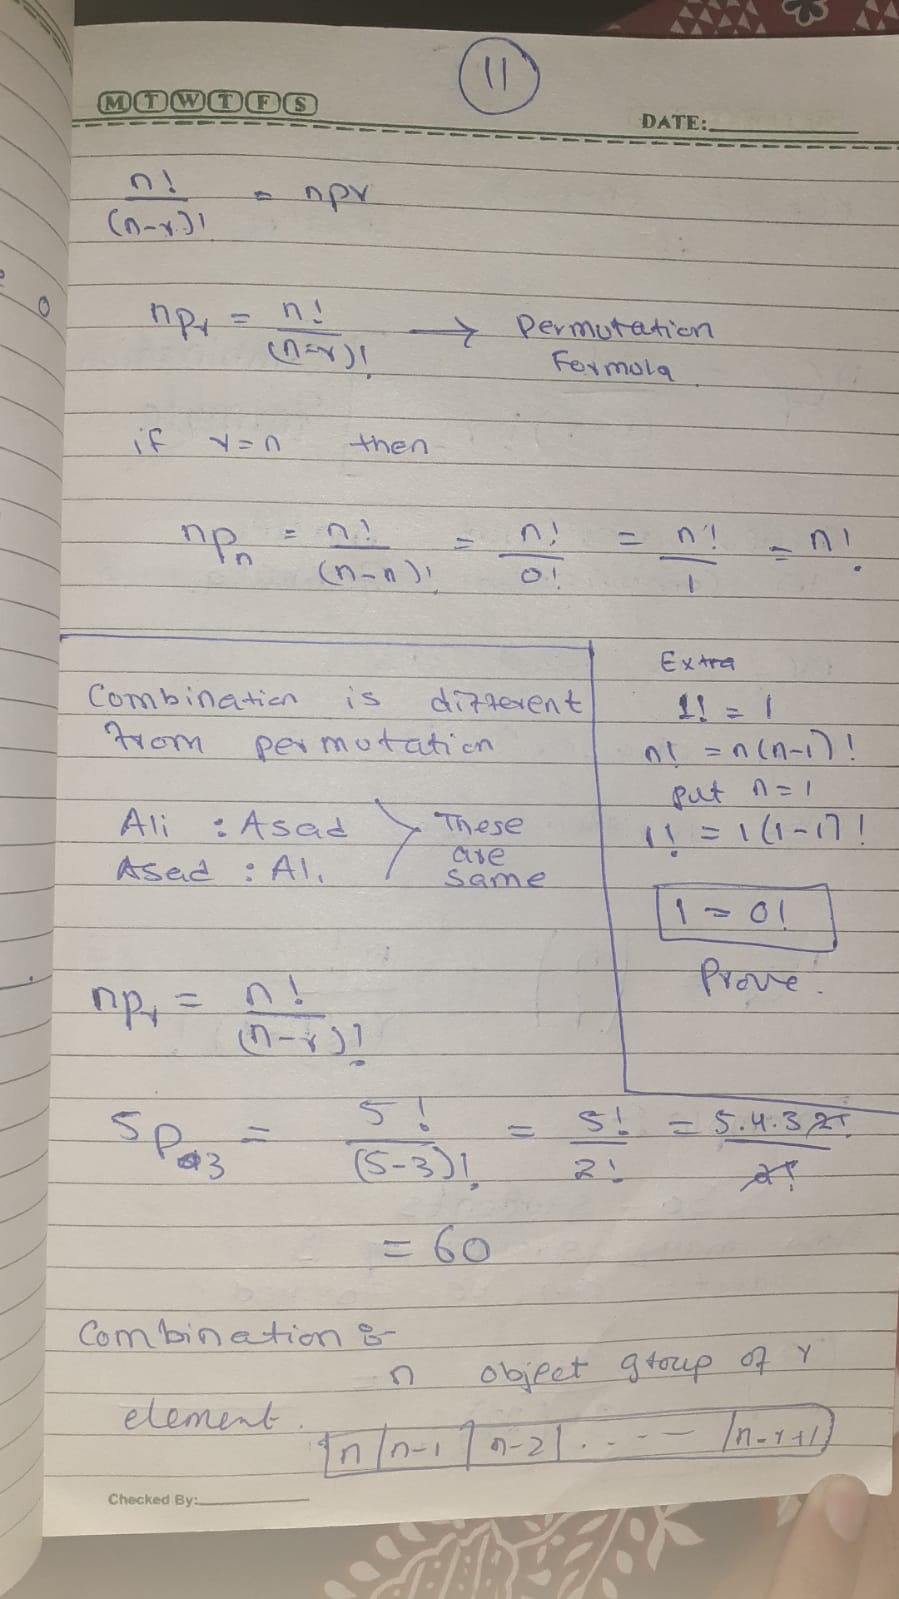 11
M T W T F S
DATE:
n!/(n-r)! = npr
nPr = n!/(n-r)! → Permutation
Formula
if r=n then
nPn = n!/(n-n)! = n!/0! = n!/1 = n!
Combination is different
from permutation
Ali : Asad
Asad : Ali
These
are
same
Extra
1! = 1
n! = n(n-1)!
put n=1
1! = 1(1-1)!
1 = 0!
Prove.
nPr = n!/(n-r)!
5P3 = 5!/(5-3)! = 5!/2! = 5.4.3 2!/2!
= 60
Combination :-
n object group of r
element.
n | n-1 | n-2 | . . . - - | n-r+1
Checked By: